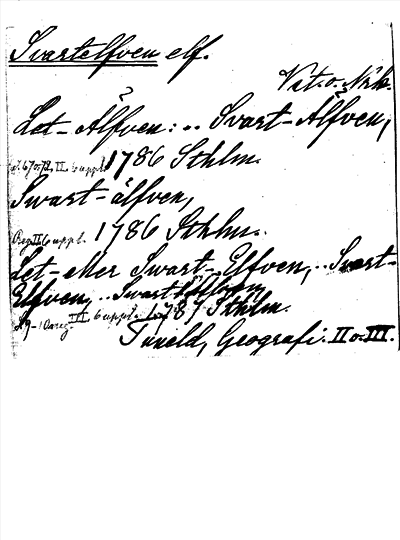 Svartelfven elf.
Vst. o. Närk.
Let-Älfven: .. Svart-Älfven,
s. 67 o. 72, II 6 uppl. 1786 Sthlm.
Swart-älfven,
Reg. II 6 uppl. 1786 Sthlm.
Let- eller Swart-Elfven, .. Svart-
Elfven, .. Swart
III 6 uppl. 1787 Sthlm.
Tuneld, Geografi. II o. III.